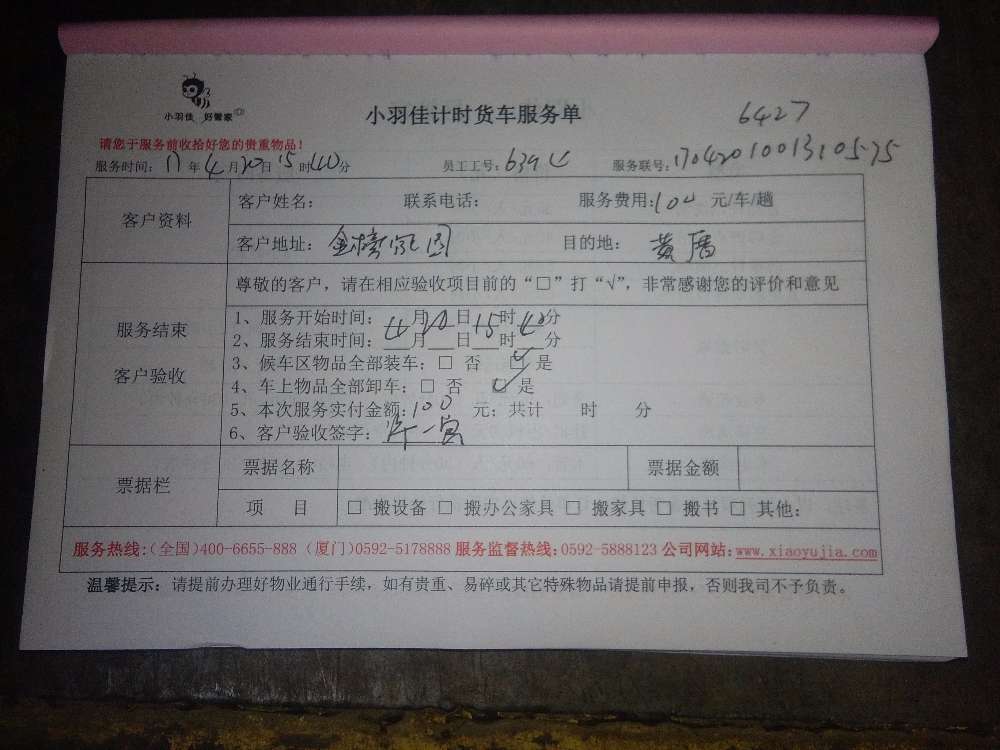 小羽佳 好管家
小羽佳计时货车服务单
6427
请您于服务前收拾好您的贵重物品!
服务时间: 17年4月20日15时40分 员工工号: 6394 服务联号: 1704201001310575
客户资料
客户姓名: 联系电话: 服务费用: 100 元/车/趟
客户地址: 金榜花园 目的地: 黄厝
服务结束
客户验收
尊敬的客户,请在相应验收项目前的“□”打“√”,非常感谢您的评价和意见
1、服务开始时间: 4月20日15时40分
2、服务结束时间: 月 日 时 分
3、候车区物品全部装车: □ 否 ☑ 是
4、车上物品全部卸车: □ 否 ☑ 是
5、本次服务实付金额: 100 元; 共计 时 分
6、客户验收签字:
票据栏
票据名称 票据金额
项 目 □ 搬设备 □ 搬办公家具 □ 搬家具 □ 搬书 □ 其他:
服务热线:(全国)400-6655-888 (厦门)0592-5178888 服务监督热线:0592-5888123 公司网站:www.xiaoyujia.com
温馨提示: 请提前办理好物业通行手续, 如有贵重、易碎或其它特殊物品请提前申报, 否则我司不予负责。